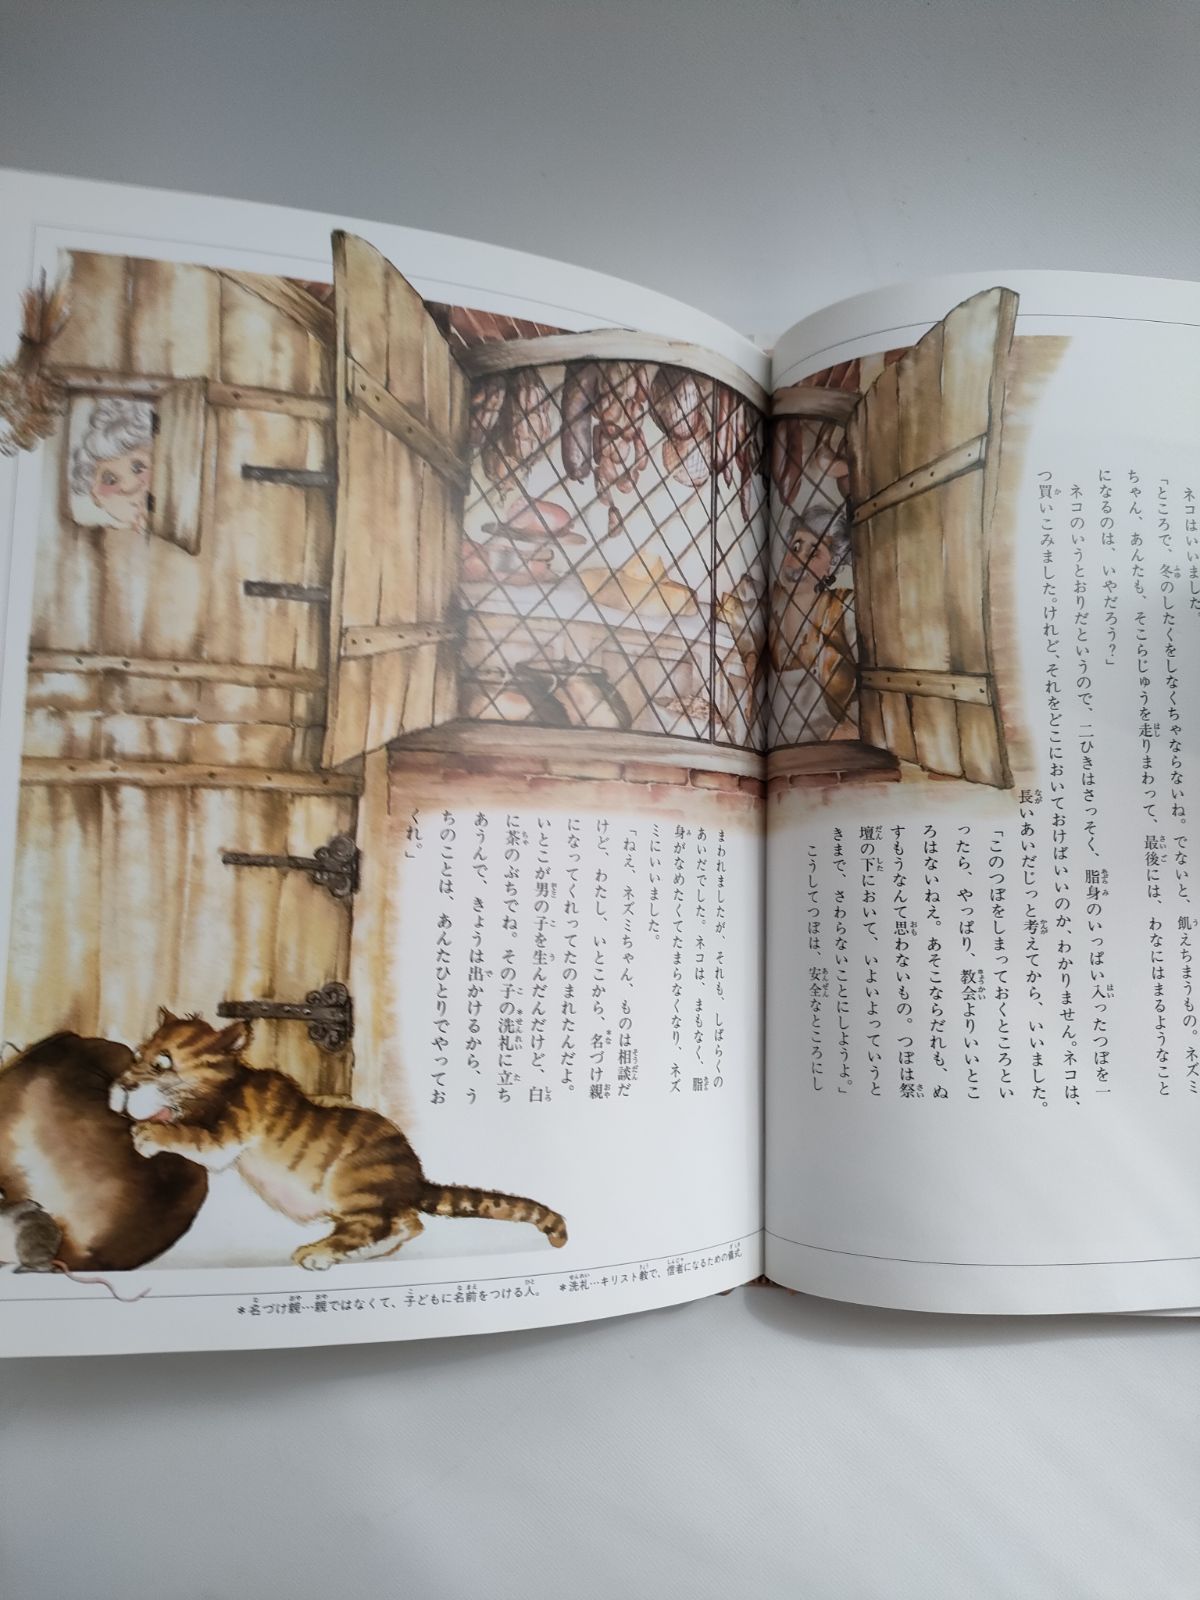 ネコはいいました
「ところで、冬のしたくをしなくちゃならないね。でないと、飢えちまうもの。ネズミ
ちゃん、あんたも、そこらじゅうを走りまわって、最後には、わなにはまるようなこと
になるのは、いやだろう？」
ネコのいうとおりだというので、二ひきはさっそく、脂身のいっぱい入ったつぼを一
つ買いこみました。けれど、それをどこにおいておけばいいのか、わかりません。ネコは、
長いあいだじっと考えてから、いいました。
「このつぼをしまっておくところとい
ったら、やっぱり、教会よりいいとこ
ろはないねえ。あそこならだれも、ぬ
すもうなんて思わないもの。つぼは祭
壇の下において、いよいよっていうと
きまで、さわらないことにしようよ。」
こうしてつぼは、安全なところにし
まわれましたが、それも、しばらくの
あいだでした。ネコは、まもなく、脂
身がなめたくてたまらなくなり、ネズ
ミにいいました。
「ねえ、ネズミちゃん、ものは相談だ
けど、わたし、いとこから、名づけ親
になってくれってたのまれたんだよ。
いとこが男の子を生んだんだけど、白
に茶のぶちでね。その子の洗礼に立ち
あうんで、きょうは出かけるから、う
ちのことは、あんたひとりでやってお
くれ。」
＊名づけ親…親ではなくて、子どもに名前をつける人。 ＊洗礼…キリスト教で、信者になるための儀式。